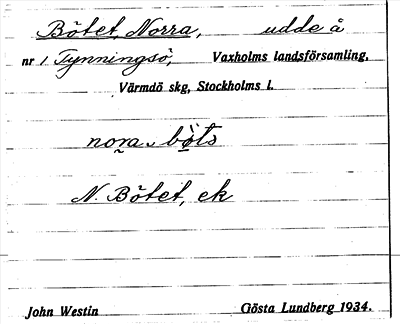 Bötet, Norra, udde å
nr 1 Tynningsö, Vaxholms landsförsamling,
Värmdö skg, Stockholms l.
nora böts
N. Bötet, ek
John Westin Gösta Lundberg 1934.